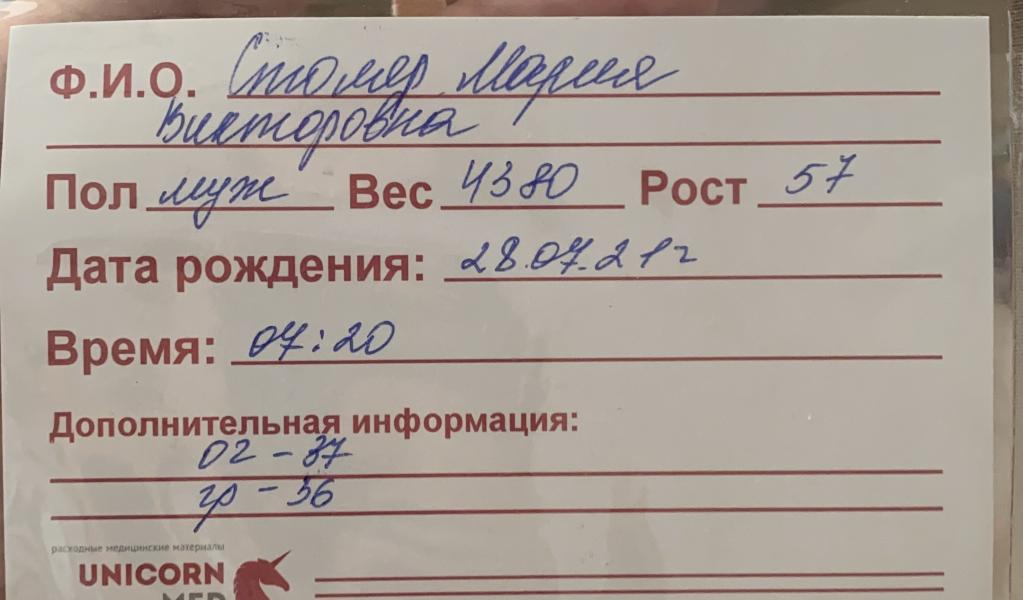 Ф.И.О. Столяр Мария
Викторовна
Пол муж Вес 4380 Рост 57
Дата рождения: 28.07.21г
Время: 07:20
Дополнительная информация:
ОГ - 37
гр - 36
расходные медицинские материалы
UNICORN
MED